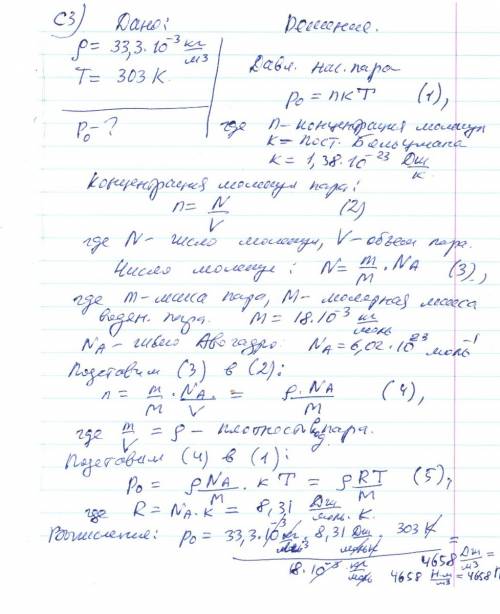 С3) Дано: Решение.
ρ = 33,3·10⁻³ кг/м3
T = 303 К. Давл. нас. пара
P₀ - ? P₀ = nкT (1),
где n - концентрация молекул
к = пост. Больцмана
к = 1,38·10⁻²³ Дж/к.
Концентрация молекул пара:
n = N/V (2)
где N - число молекул, V - объем пара.
Число молекул: N = m/M · NA (3),
где m - масса пара, M - молярная масса
водян. пара. M = 18·10⁻³ кг/моль
NA - число Авогадро. NA = 6,02·10²³ моль⁻¹
Подставим (3) в (2):
n = m/M · NA/V = ρ·NA/M (4),
где m/V = ρ - плотность пара.
Подставим (4) в (1):
P₀ = ρNA/M · кT = ρRT/M (5),
где R = NA·к = 8,31 Дж/моль·К.
Вычисления: P₀ = 33,3·10⁻³ кг/м3 · 8,31 Дж/моль·к · 303 К / 18·10⁻³ кг/моль =
= 4658 Дж/м3
4658 Н·м/м3 = 4658